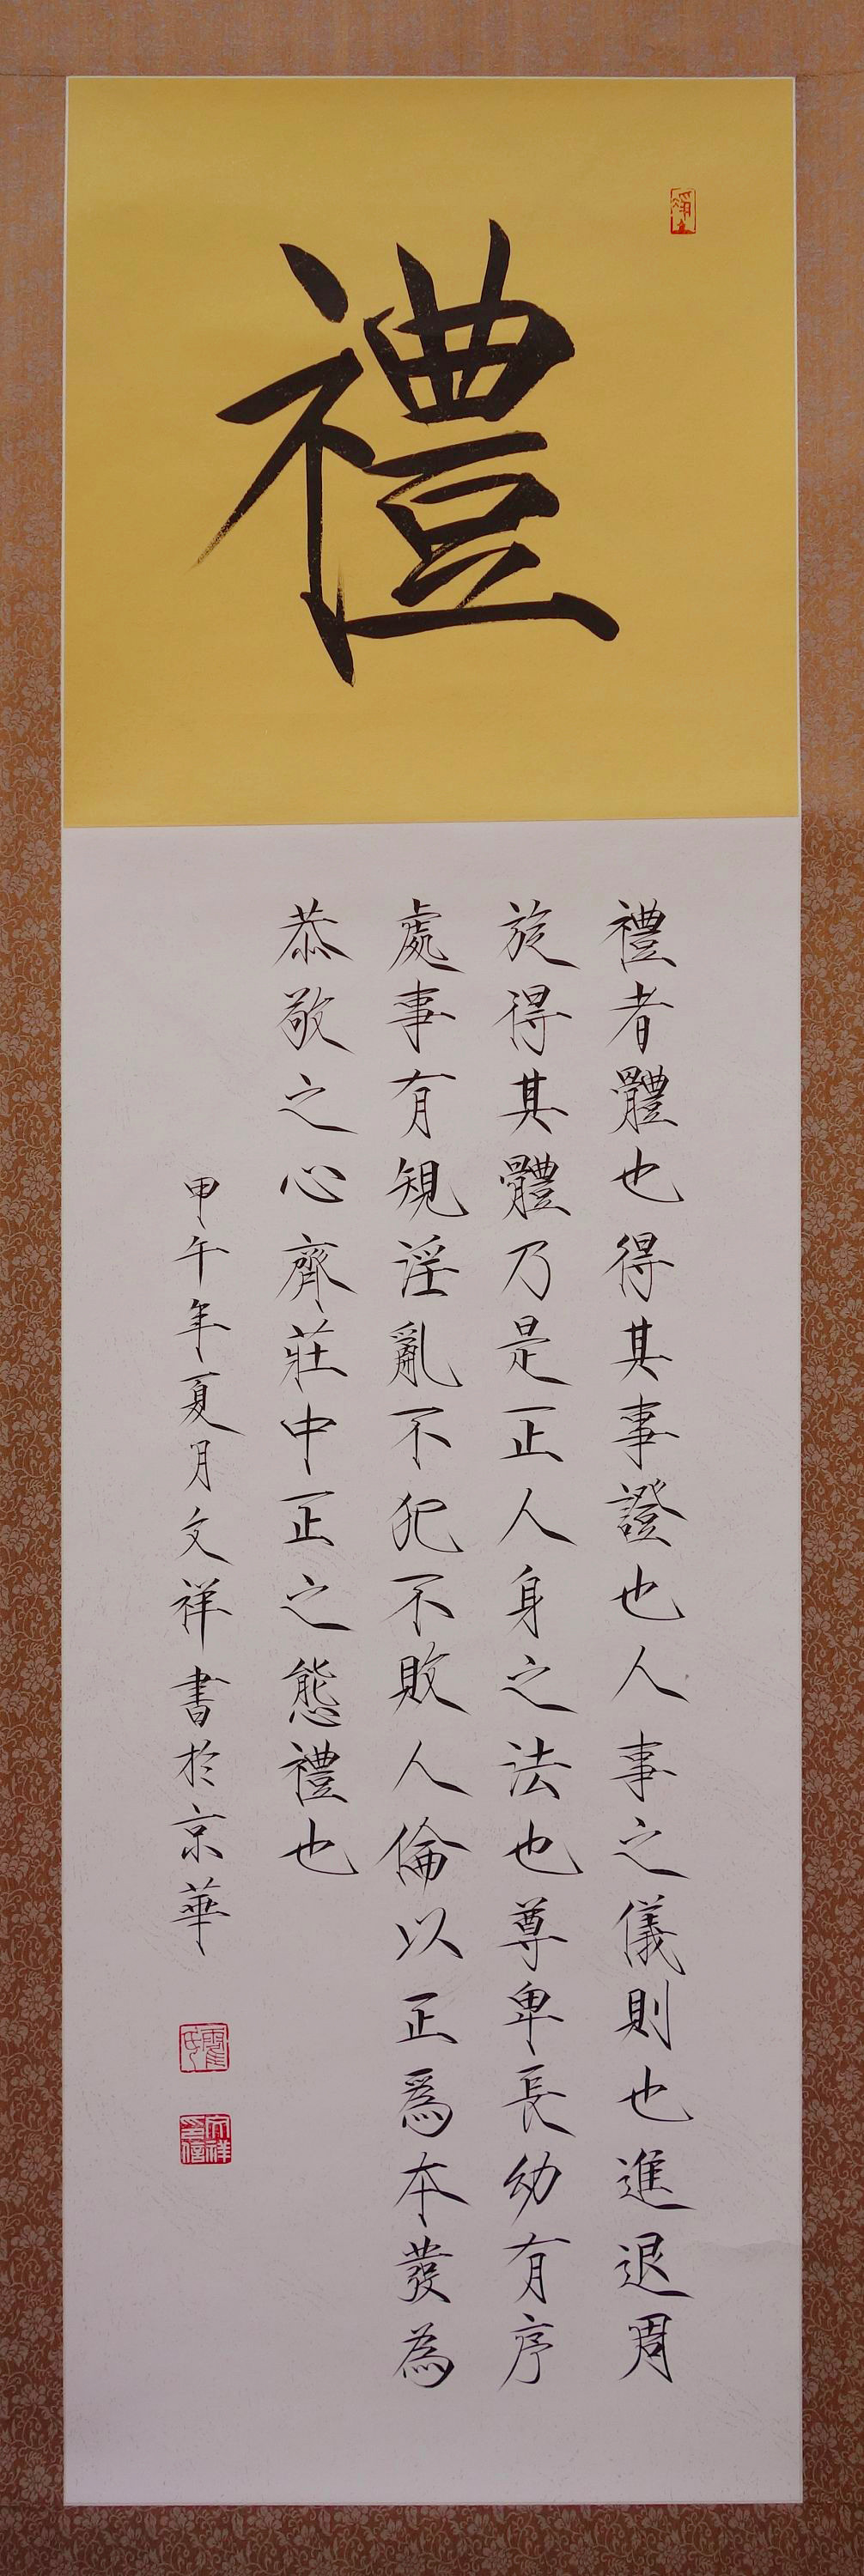 禮
禮者體也得其事證也人事之儀則也進退周
旋得其體乃是正人身之法也尊卑長幼有序
處事有規淫亂不犯不敗人倫以正爲本發為
恭敬之心齊莊中正之態禮也
甲午年夏月文祥書於京華